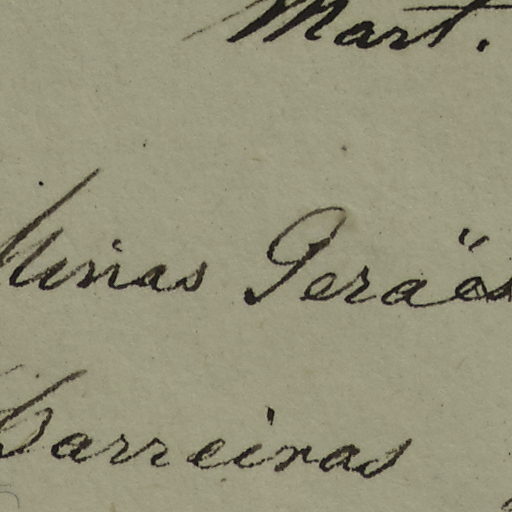 Mart.
Minas Geraës
Barreiras